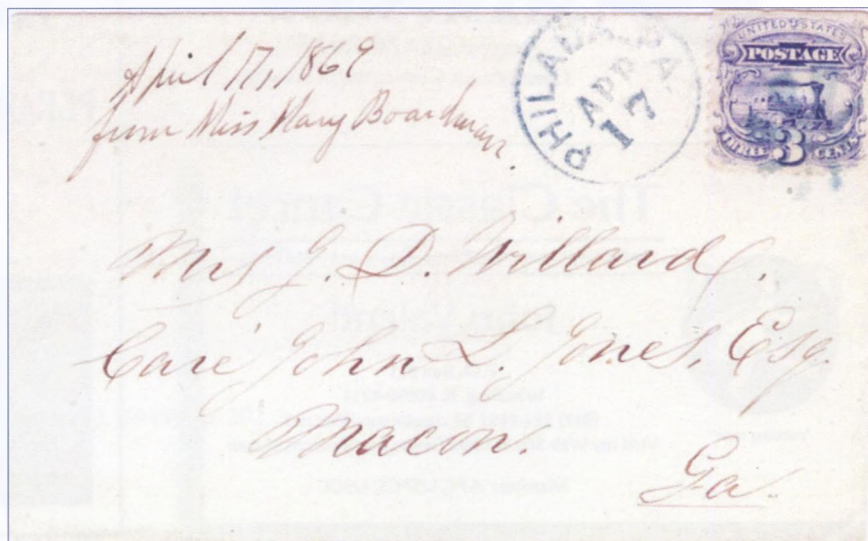 April 17, 1869
from Miss Mary Boardman.
PHILADA. PA.
APR
17
UNITED STATES
POSTAGE
THREE 3 CENTS
Mrs J. D. Willard.
Care John L. Jones, Esq.
Macon.
Ga.